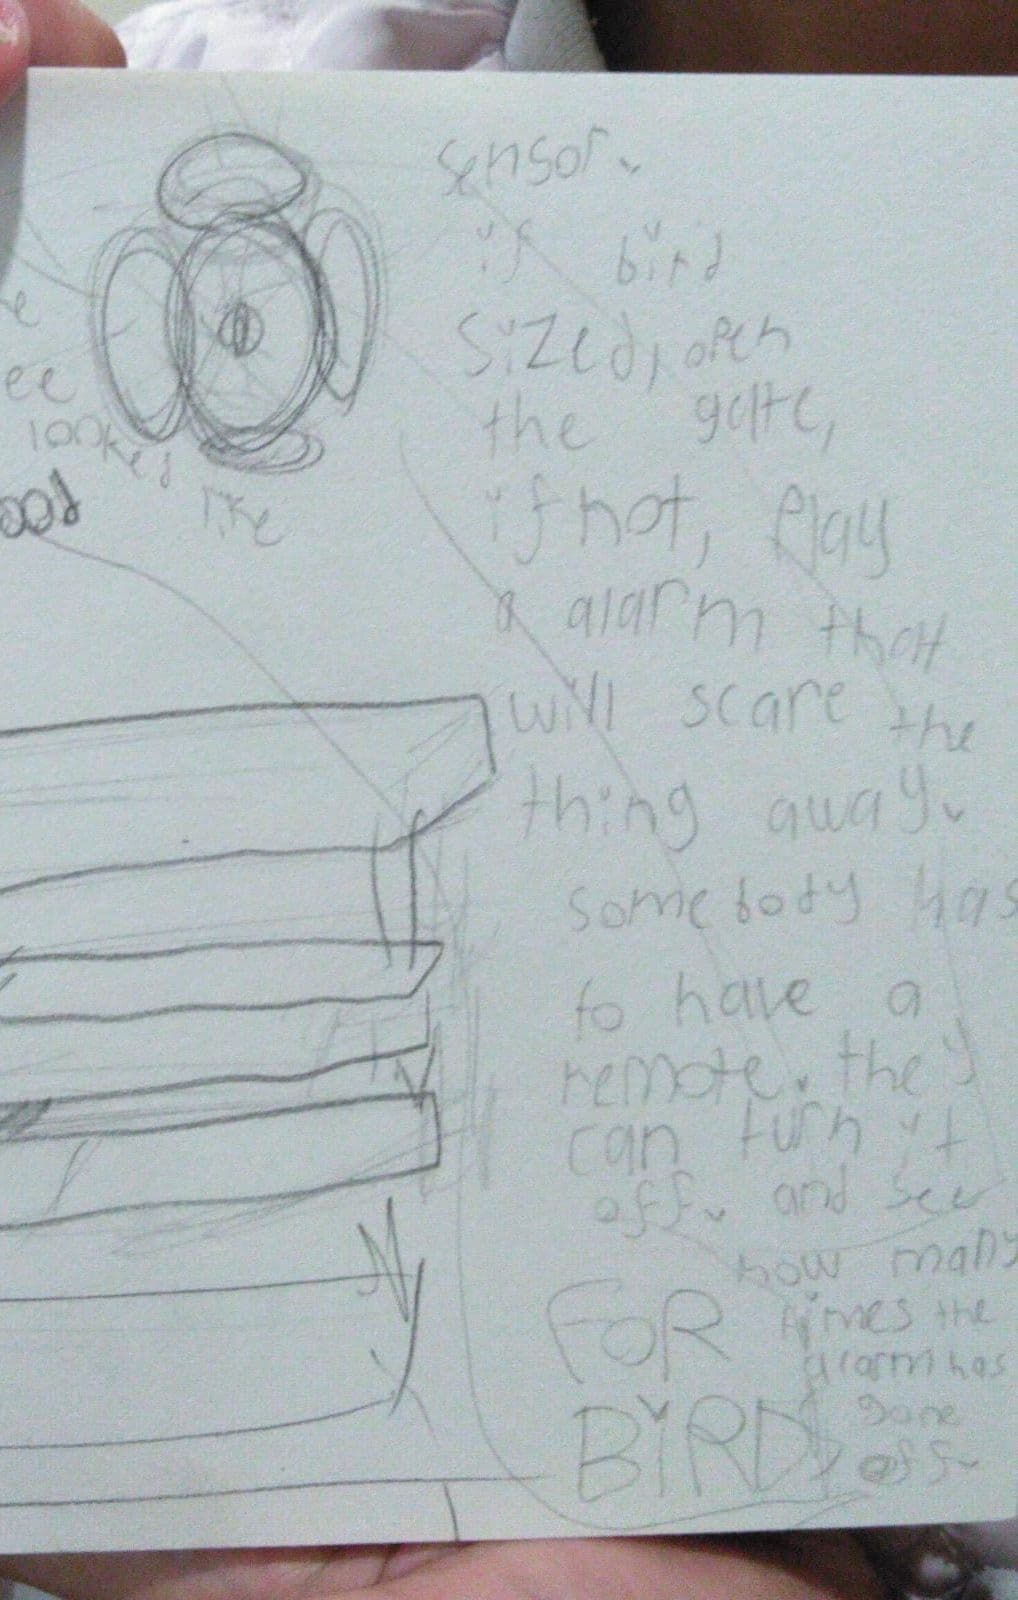 sensor.
if bird
sized, open
the gate,
if not, play
a alarm that
will scare the
thing away.
somebody has
to have a
remote. they
can turn it
off. and see
how many
times the
alarm has
gone
off.
FOR
BIRDS
looked
like